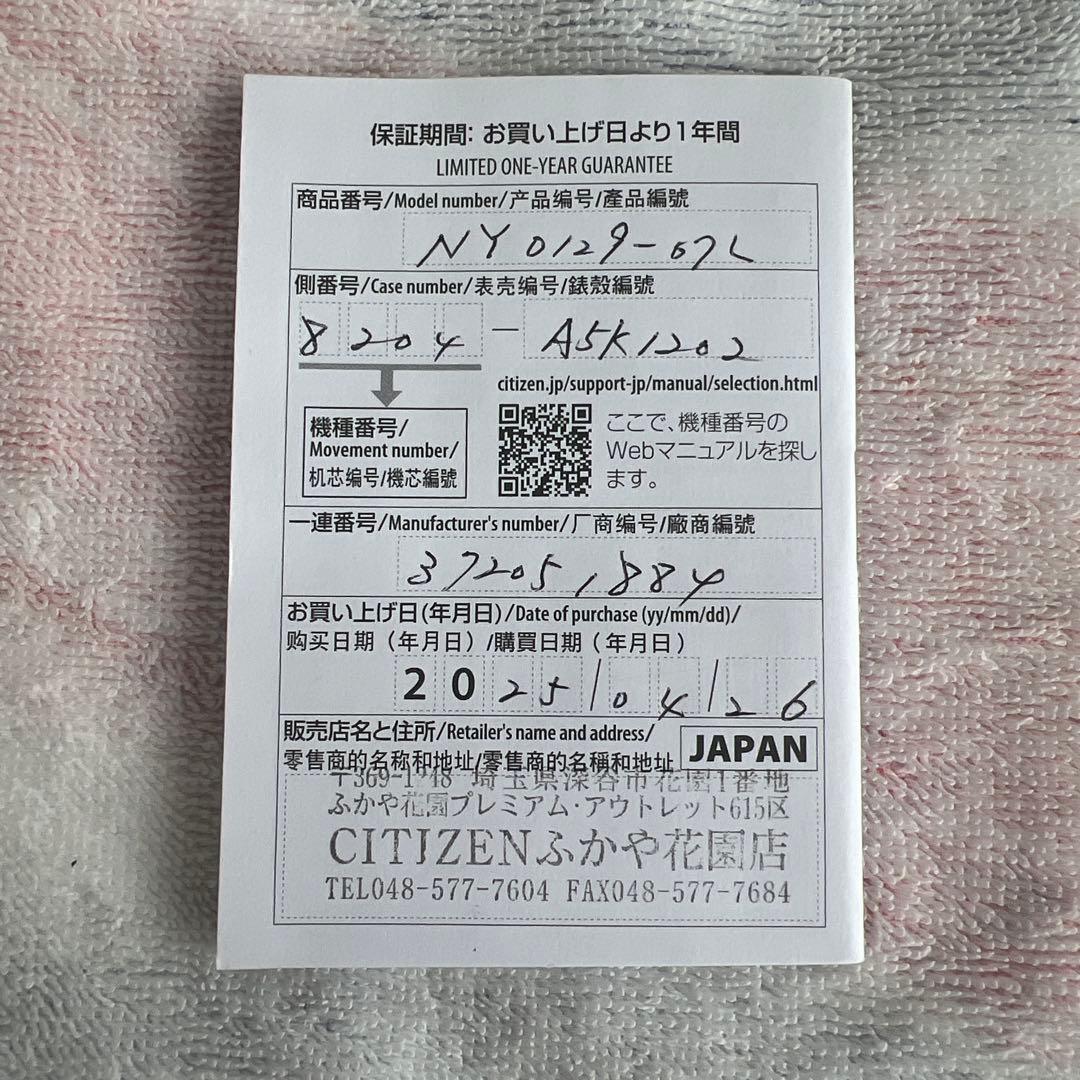 保証期間: お買い上げ日より1年間
LIMITED ONE-YEAR GUARANTEE
商品番号/Model number/产品编号/產品編號
NY0129-07L
側番号/Case number/表壳编号/錶殼編號
8204 - A5K1202
citizen.jp/support-jp/manual/selection.html
機種番号/
Movement number/
机芯编号/機芯編號
ここで、機種番号の
Webマニュアルを探し
ます。
一連番号/Manufacturer's number/厂商编号/廠商編號
372051884
お買い上げ日(年月日)/Date of purchase (yy/mm/dd)/
购买日期（年月日）/購買日期（年月日）
2025/04/26
販売店名と住所/Retailer's name and address/
零售商的名称和地址/零售商的名稱和地址
JAPAN
埼玉県深谷市花園1番地
ふかや花園プレミアム・アウトレット615区
CITIZENふかや花園店
TEL048-577-7604 FAX048-577-7684